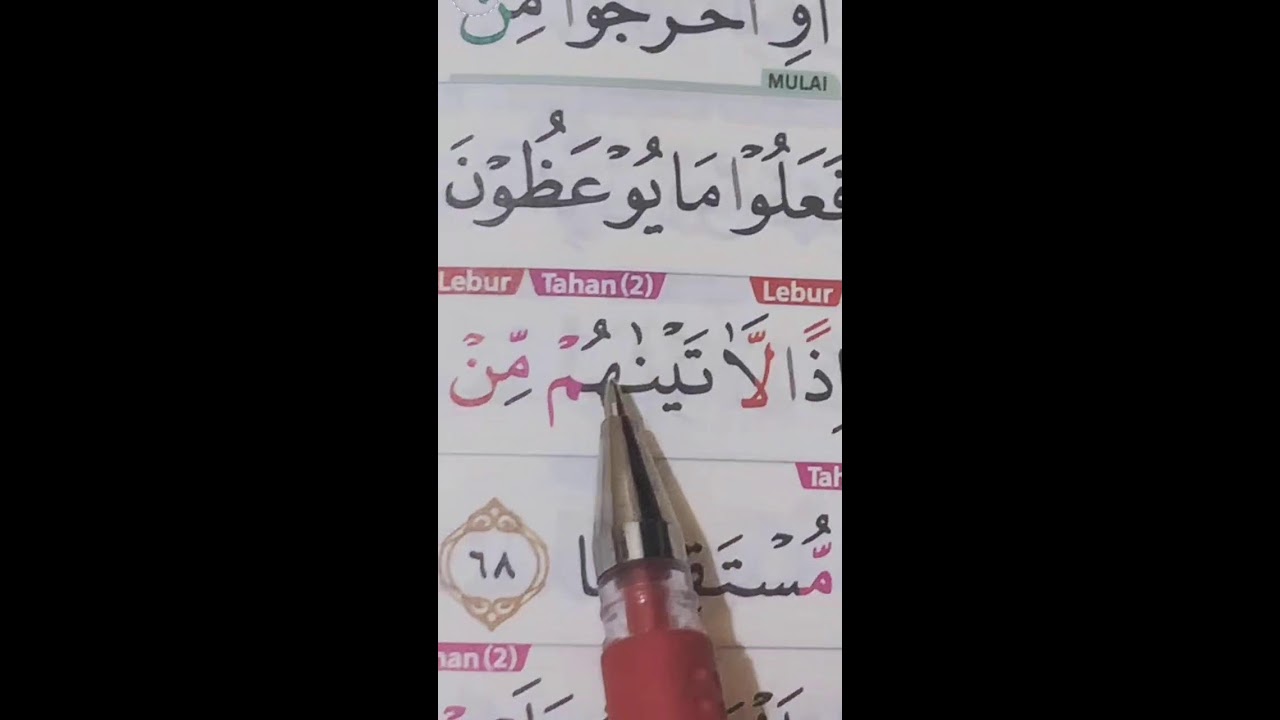 اَوِ اخْرُجُوْا مِنْ
MULAI
فَعَلُوْا مَا يُوْعَظُوْنَ
Lebur Tahan (2) Lebur
اِذًا لَّاٰتَيْنٰهُمْ مِّنْ
مُّسْتَقِ ا ٦٨